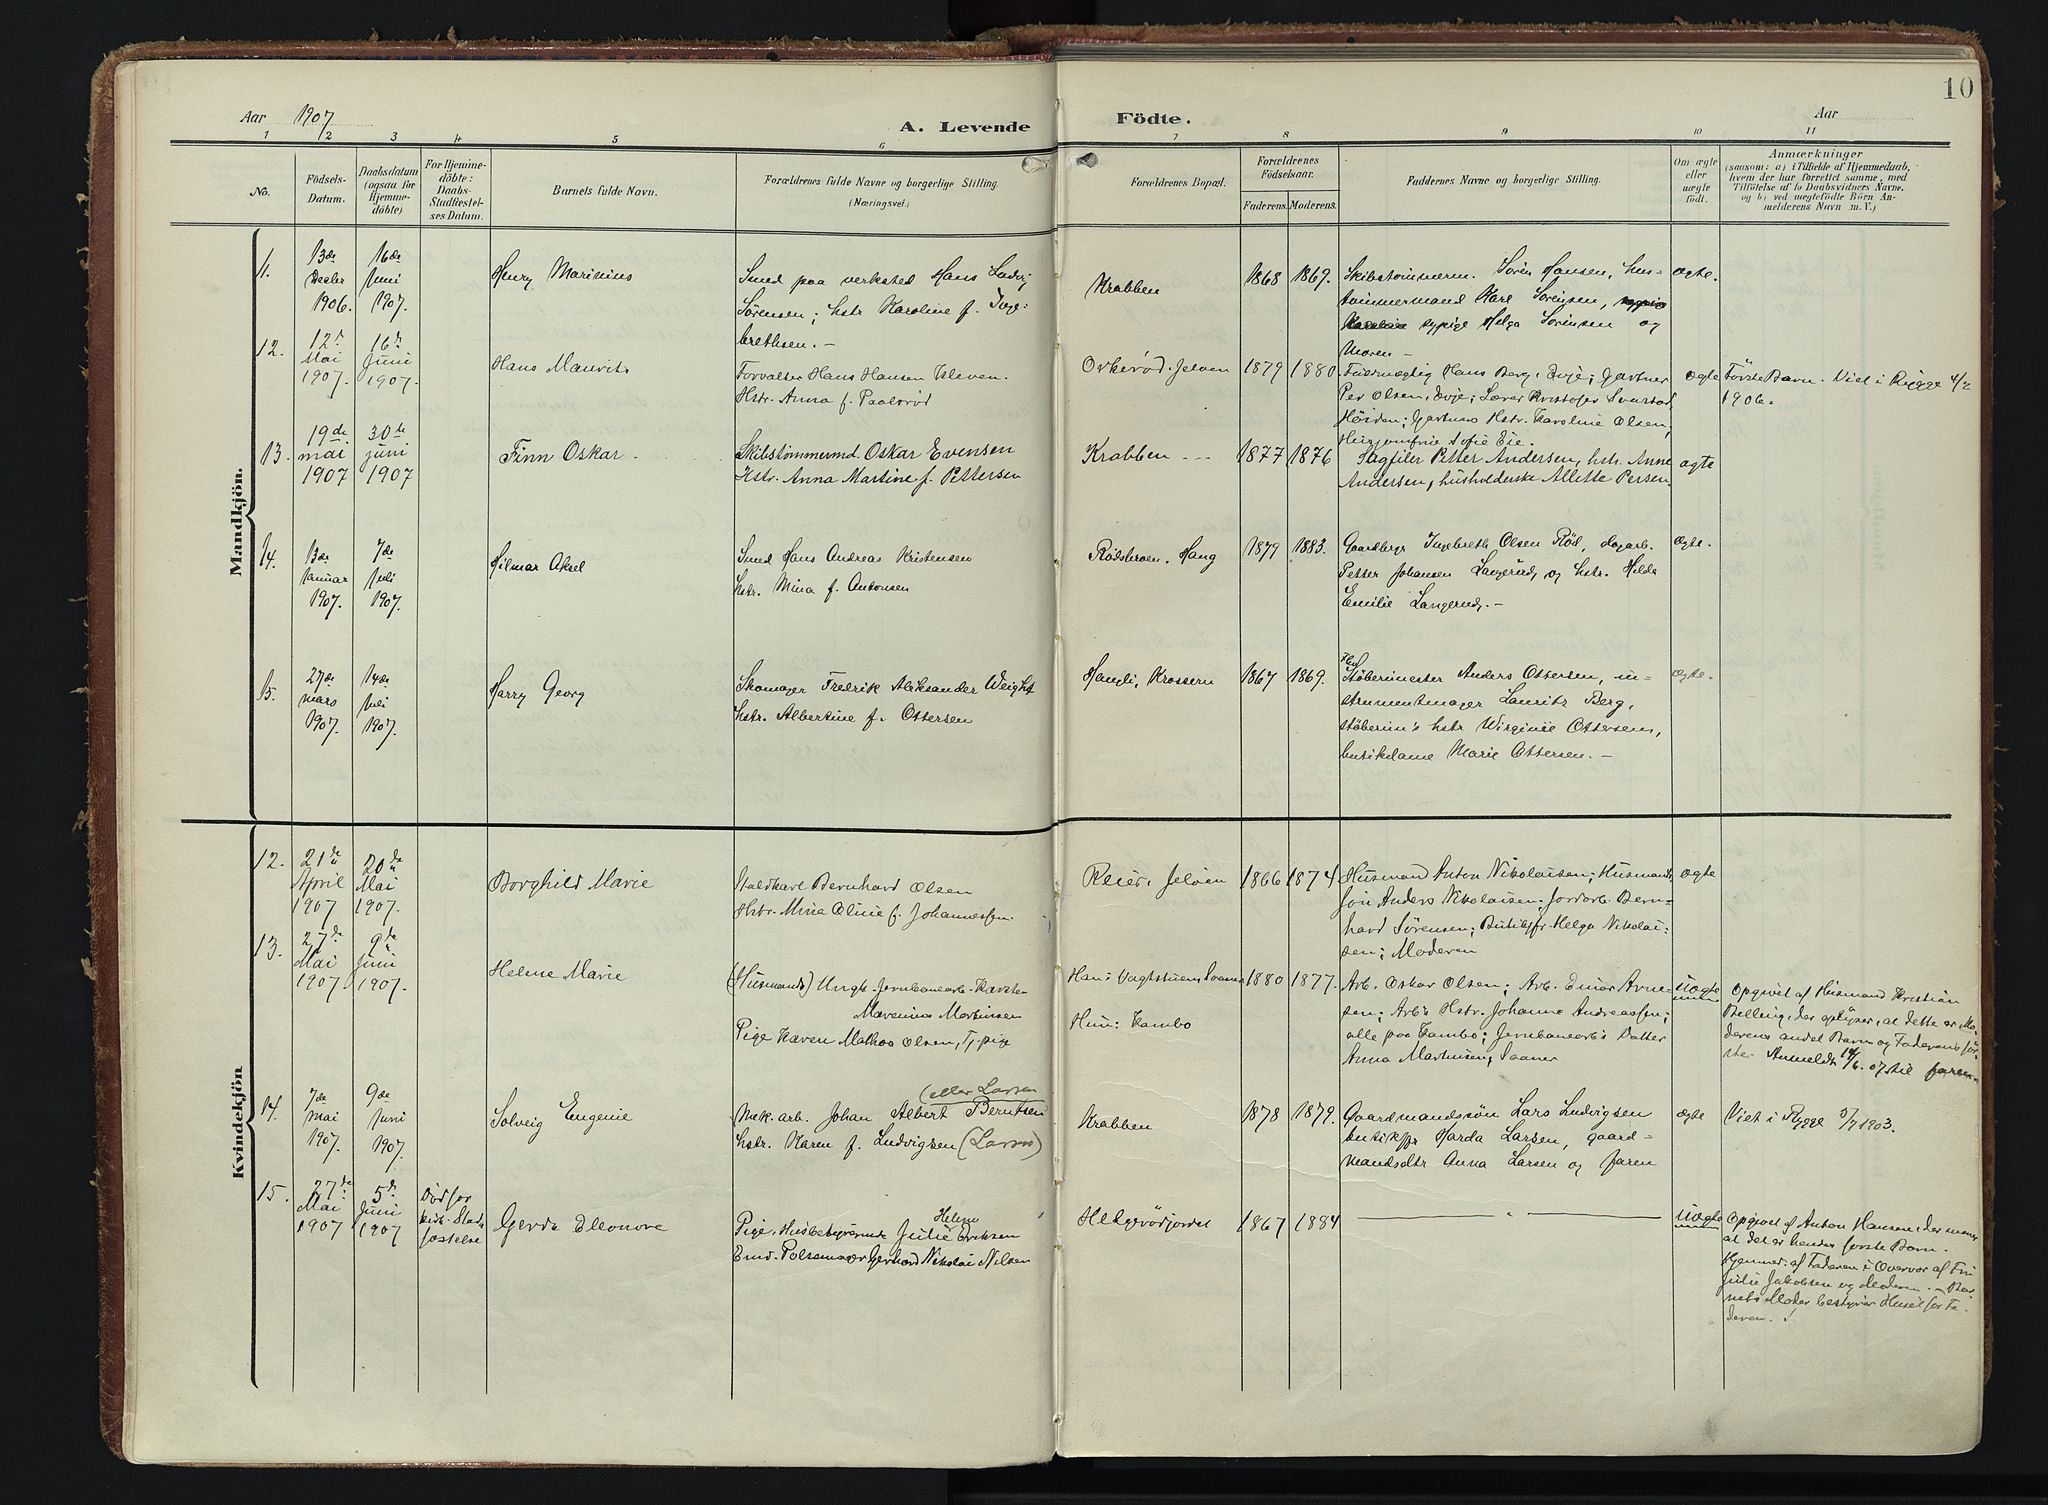 10
Aar 1907
A. Levende Födte.
Aar
1 2 3 4 5 6 7 8 9 10 11
No.
Födsels-Datum.
Daabsdatum (ogsaa for Hjemme-döbte)
For Hjemme-döbte: Daabs-Stadfæstel-ses Datum.
Barnets fulde Navn.
Forældrenes fulde Navne og borgerlige Stilling.
(Næringsvei.)
Forældrenes Bopæl.
Forældrenes Födselsaar.
Faderens. Moderens.
Faddernes Navne og borgerlige Stilling.
Om ægte eller uægte födt.
Anmærkninger
(saasom: a) i Tilfælde af Hjemmedaab,
hvem der har forrettet samme, med
Tilföielse af to Daabsvidners Navne,
og b) ved uægtefödte Börn An-
melderens Navn m. V.)
Mandkjön.
11.
13de Decbr 1906.
16de Juni 1907.
Henry Marinius
Smed paa verksted Hans Ludvig
Sørensen; hstr Karoline f. Inge-
brethsen. -
Krabben
1868 1869.
Skibstömmerm. Sören Hansen, hus-
tömmermand Karl Sörensen,
sypige Helga Sörensen og
Moren -
ægte.
12.
12te Mai 1907.
16de Juni 1907.
Hans Maurits
Forvalter Hans Hansen Isleven.
Hstr. Anna f. Paalsröd
Orkeröd. Jelöen
1879 1880.
Hans Berg, Evje; Gartner
Per Olsen, Evje; Lærer Kristofer
Höiden; Gartners Hstr. Karoline Olsen;
Husjomfru Sofie Eie.
ægte
Förste Barn. Viet i Rygge
1906.
13.
19de mai 1907
30te juni 1907
Finn Oskar
Skibstömmermd. Oskar Evensen
Hstr. Anna Martine f. Pettersen
Krabben
1877 1876
Sagfiler Petter Andersen, hstr. Anne
Andersen, husholderske Allette Persen
ægte
14.
13de Januar 1907.
7de Juli 1907.
Hilmar Aksel
Smed Hans Andreas Kristensen
hstr. Mina f. Antonsen
Rödsbroen, Haug
1879 1883.
Gaardbrgr Ingebreth Olsen Röd, dagarb.
Petter Johansen Langerud, og hstr. Hilda
Emilie Langerud. -
ægte.
15.
27de mars 1907.
14de Juli 1907.
Harry Georg
Skomager Fredrik Aleksander Weight
hstr. Albertine f. Ottersen
Haugli, Krossern
1867 1869.
Støberimester Anders Ottersen, in-
strumentmager Lauritz Berg,
støberim's hstr Wirginie Ottersen,
butikdame Marie Ottersen. -
ægte.
Kvindekjön
12.
21de April 1907
20de Mai 1907.
Borghild Marie
Staldkarl Bernhard Olsen
Hstr. Mina Oline f. Johannessen.
Reier, Jelöen
1866 1874
Husmand Anton Nikolaisen; Husmands
sön Anders Nikolaisen; Jordarb. Bern-
hard Sørensen; Butikfr. Helga Nikolai-
sen; Moderen
ægte
13.
27de Mai 1907
9de Juni 1907.
Helene Marie
(Husmands) Ungk. Jernbanearb. Karsten
Marenius Martinsen
Pige Karen Mathea Olsen, Tj.pige
Han: Vagtstuen, Saaner
Hun: Kambo
1880 1877.
Arb. Oskar Olsen; Arb. Einar Arne-
sen; Arb's Hstr. Johanne Andreassen;
alle paa Kambo; Jernbanearb's Datter
Anna Martinsen, Saaner
uægte
Opgivet af Husmand Kristian
Belling, der oplyser, at dette er Mo-
derens andet Barn og Faderens för-
ste. Anmeldt 14/6. 07 til faren
14.
7de mai 1907.
9de Juni 1907.
Solveig Eugenie
(eller Larsen
Mek. arb. Johan Albert Berntsen
hstr. Karen f. Ludvigsen (Larsen)
Krabben
1878 1879.
Gaardmandssön Lars Ludvigsen
butikfr Harda Larsen, gaard-
mandsdtr Anna Larsen og faren
ægte
Viet i Rygge 5/7 1903.
15.
27de Mai 1907
5te Juni 1907
Död för kirk. Stadfæstelse
Gerda Eleonore
Pige, Husbestyrerinde Julie Helene Eriksen
Emd. Pölsemager Gerhard Nikolai Nilsen
Helgerödjordet
1867 1884
uægte
Opgivet af Anton Hansen, der mener
at det er hendes förste Barn.
Hjemmed. af Faderen i Overvær af Fru
Julie Jakobsen og Moderen. - Bar-
nets Moder bestyrer Huset for Fa-
deren.